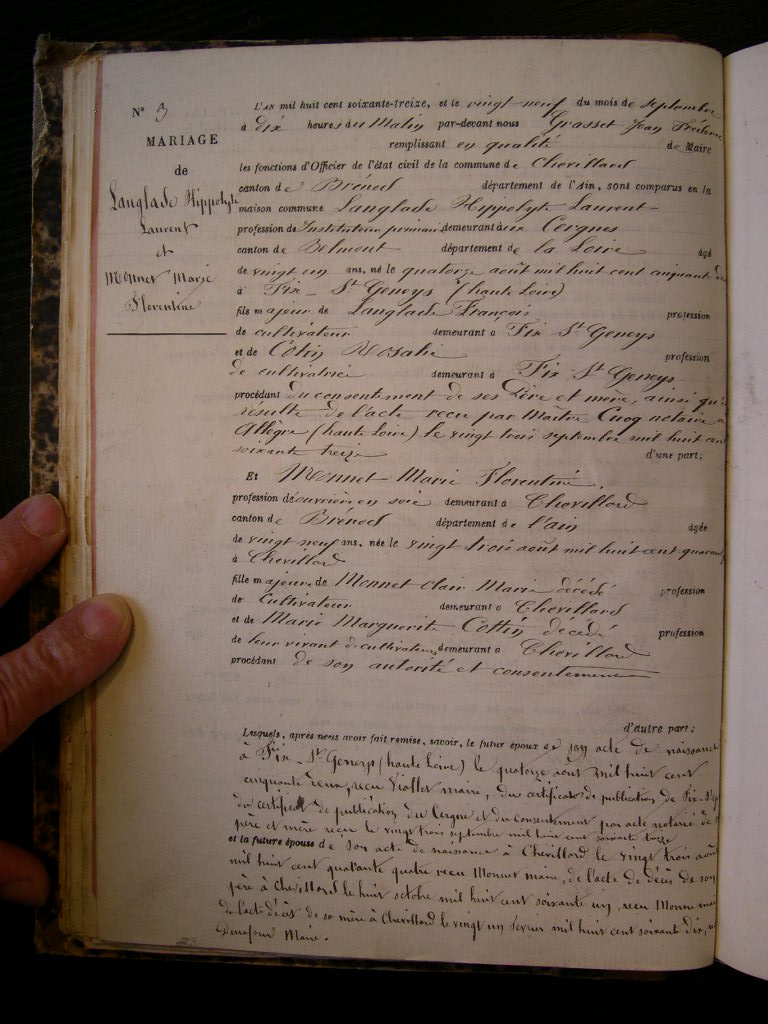 N° 3
MARIAGE
de
Langlade Hippolyte
Laurent
et
Monnet Marie
Florentine
L'AN mil huit cent soixante-treize, et le vingt-neuf du mois de septembre
à dix heures du Matin par-devant nous Grasset Jean Frédéric
remplissant en qualité de Maire
les fonctions d'Officier de l'état civil de la commune de Chevillard
canton de Brénod département de l'Ain, sont comparus en la
maison commune Langlade Hippolyte Laurent
profession de Instituteur primaire demeurant à aux Cergnes
canton de Belmont département de la Loire âgé
de vingt un ans, né le quatorze août mil huit cent cinquante
à Fix-St Geneys (haute Loire)
fils majeur de Langlade François profession
de cultivateur demeurant à Fix St Geneys
et de Cotin Rosalie profession
de cultivatrice demeurant à Fix St Geneys
procédant du consentement de ses Père et mère, ainsi qu'il
résulte de l'acte recu par Maître Cuoq notaire à
Allègre (haute Loire) le vingt trois septembre mil huit cent
soixante treize d'une part;
Et Monnet Marie Florentine.
profession de ouvrière en soie demeurant à Chevillard
canton de Brénod département de l'ain âgée
de vingt neuf ans, née le vingt trois août mil huit cent quarante
à Chevillard
fille majeure de Monnet Clair Marie décédé profession
de Cultivateur demeurant à Chevillard
et de Marie Marguerite Cottin décédé profession
de leur vivant de cultivateurs demeurant à Chevillard
procédant de son autorité et consentement
d'autre part;
Lesquels, après nous avoir fait remise, savoir, le futur époux de son acte de naissance
à Fix-St Geneys (haute Loire) le quatorze août mil huit cent
cinquante deux, recu Viallet maire, du certificat de publication de Fix-St
du certificat de publication du Cergne et du consentement par acte notarié de
père et mère recu le vingt trois septembre mil huit cent soixante treize
et la future épouse de son acte de naissance à Chevillard le vingt trois août
mil huit cent quarante quatre recu Monnet maire, de l'acte de décès de son
père à Chevillard le huit octobre mil huit cent soixante un, recu Monnet
de l'acte décès de sa mère à Chevillard le vingt un fevrier mil huit cent soixante dix,
Durafour Maire.